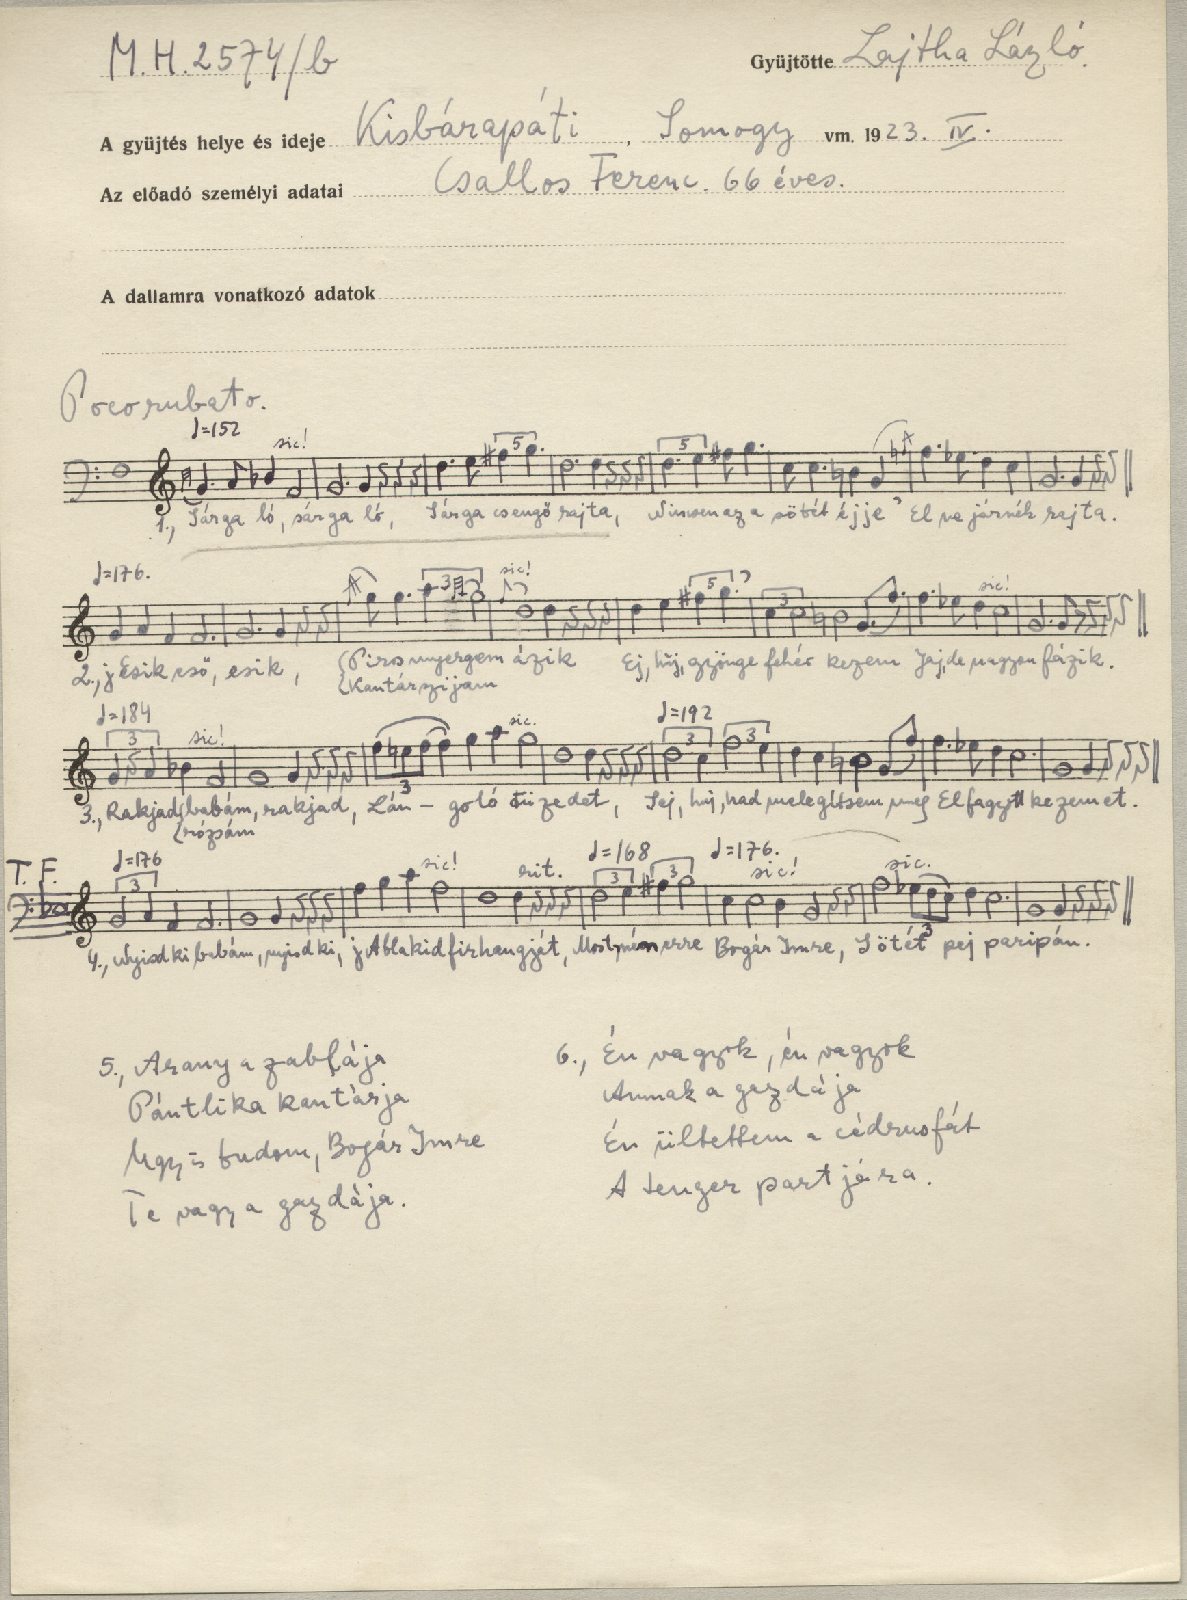 M.H.2574/b
Gyüjtötte Lajtha László.
A gyüjtés helye és ideje Kisbárapáti, Somogy vm. 1923. IV.
Az előadó személyi adatai Csallos Ferenc. 66 éves.
A dallamra vonatkozó adatok
Poco rubato.
♩=152
sic!
5
5
1., Sárga ló, sárga ló, Sárga csengő rajta, Nincsen az a sötét éjje El ne járnék rajta.
♩=176.
3
sic!
5
3
sic!
2., j Esik eső, esik, Piros nyergem ázik Ej, huj, gyönge fehér kezem Jaj, de nagyon fázik.
Kantárszijam
♩=184
3
sic!
3
sic.
♩=192
3
3
3., Rakjad babám, rakjad, Lán - goló tüzedet, Sej, huj, had melegítsem meg Elfagyott kezemet.
rózsám
T. F.
♩=176
3
sic!
rit.
♩=168
3
3
♩=176.
sic!
sic.
3
4., Nyisd ki babám, nyisd ki, j Ablakid firhangját, Most mén erre Bogár Imre, Sötét pej paripán.
5., Arany a zabłája
Pántlika kantárja
Ugy is tudom, Bogár Imre
Te vagy a gazdája.
6., Én vagyok, én vagyok
Annak a gazdája
Én ültettem a cédrusfát
A tenger partjára.